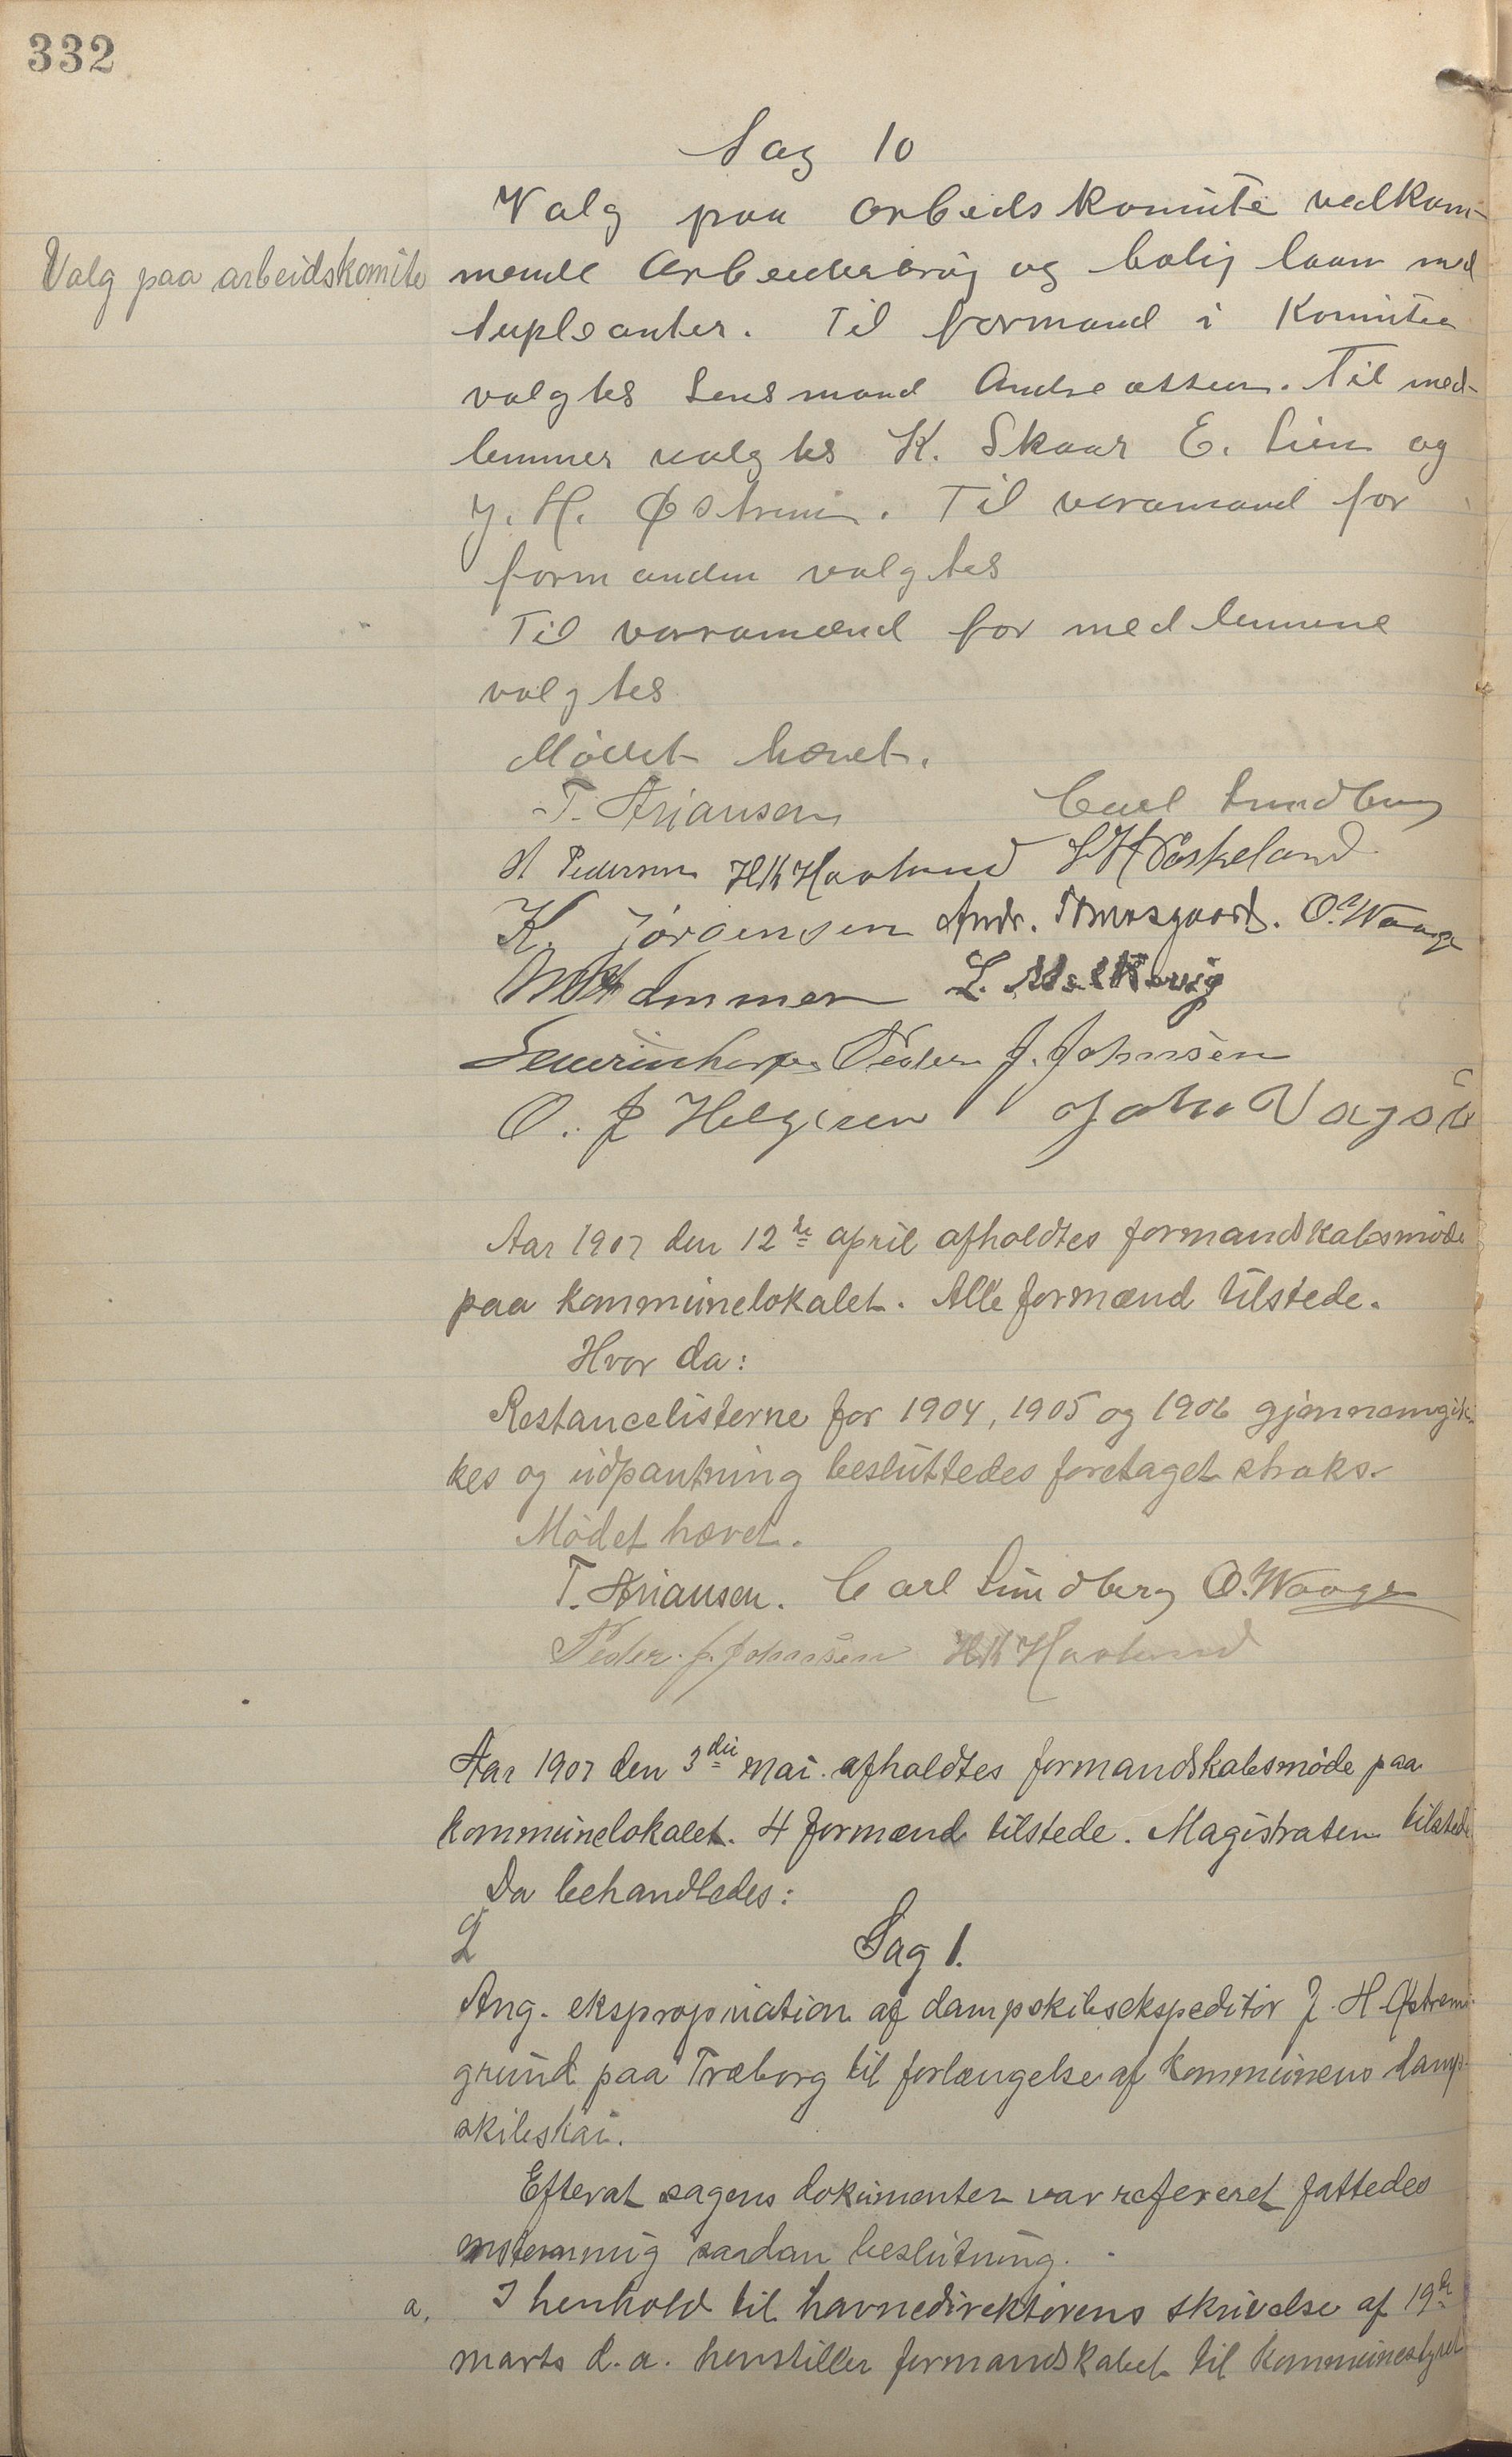 332
Sag 10
Valg paa arbeidskomite vedkom-
Valg paa arbeidskomite
mende Arbeiderbrug og bolig laan med
supleanter. Til formand i Komiteen
valgtes Lensmand Andreassen. Til med-
lemmer valgtes K. Skaar E. Lien og
J. H. Østrem. Til varamand for
formanden valgtes
Til varamænd for medlemmene
valgtes
Mødet hævet.
T. Ariansen Carl Lundberg
H Pedersen HKHaaland Hœskeland
K. Jørgensen Andr. O. Waage
L.
Peder J. Johnsen
O. J Helgesen John
Aar 1907 den 12te april afholdtes formandskabsmøde
paa kommunelokalet. Alle formænd tilstede.
Hvor da:
Restancelisterne for 1904, 1905 og 1906 gjennemgik-
kes og udpantning besluttedes foretaget straks.
Mødet hævet.
T. Ariansen. Carl Lundberg O. Waage
Peder. J. Johnsen HKHaaland
Aar 1907 den 3die mai afholdtes formandskabsmøde paa
kommunelokalet. 4 formænd tilstede. Magistraten tilstede
Da behandledes:
Sag 1.
Ang. ekspropriation af dampskibsekspeditør J. H. Østrems
grund paa Træborg til forlængelse af kommunens damp-
skibskai.
Efterat sagens dokumenter var refereret fattedes
enstemmig saadan beslutning.
a. I henhold til havnedirektørens skrivelse af 19de
marts d.a. henstiller formandskabet til kommunestyret